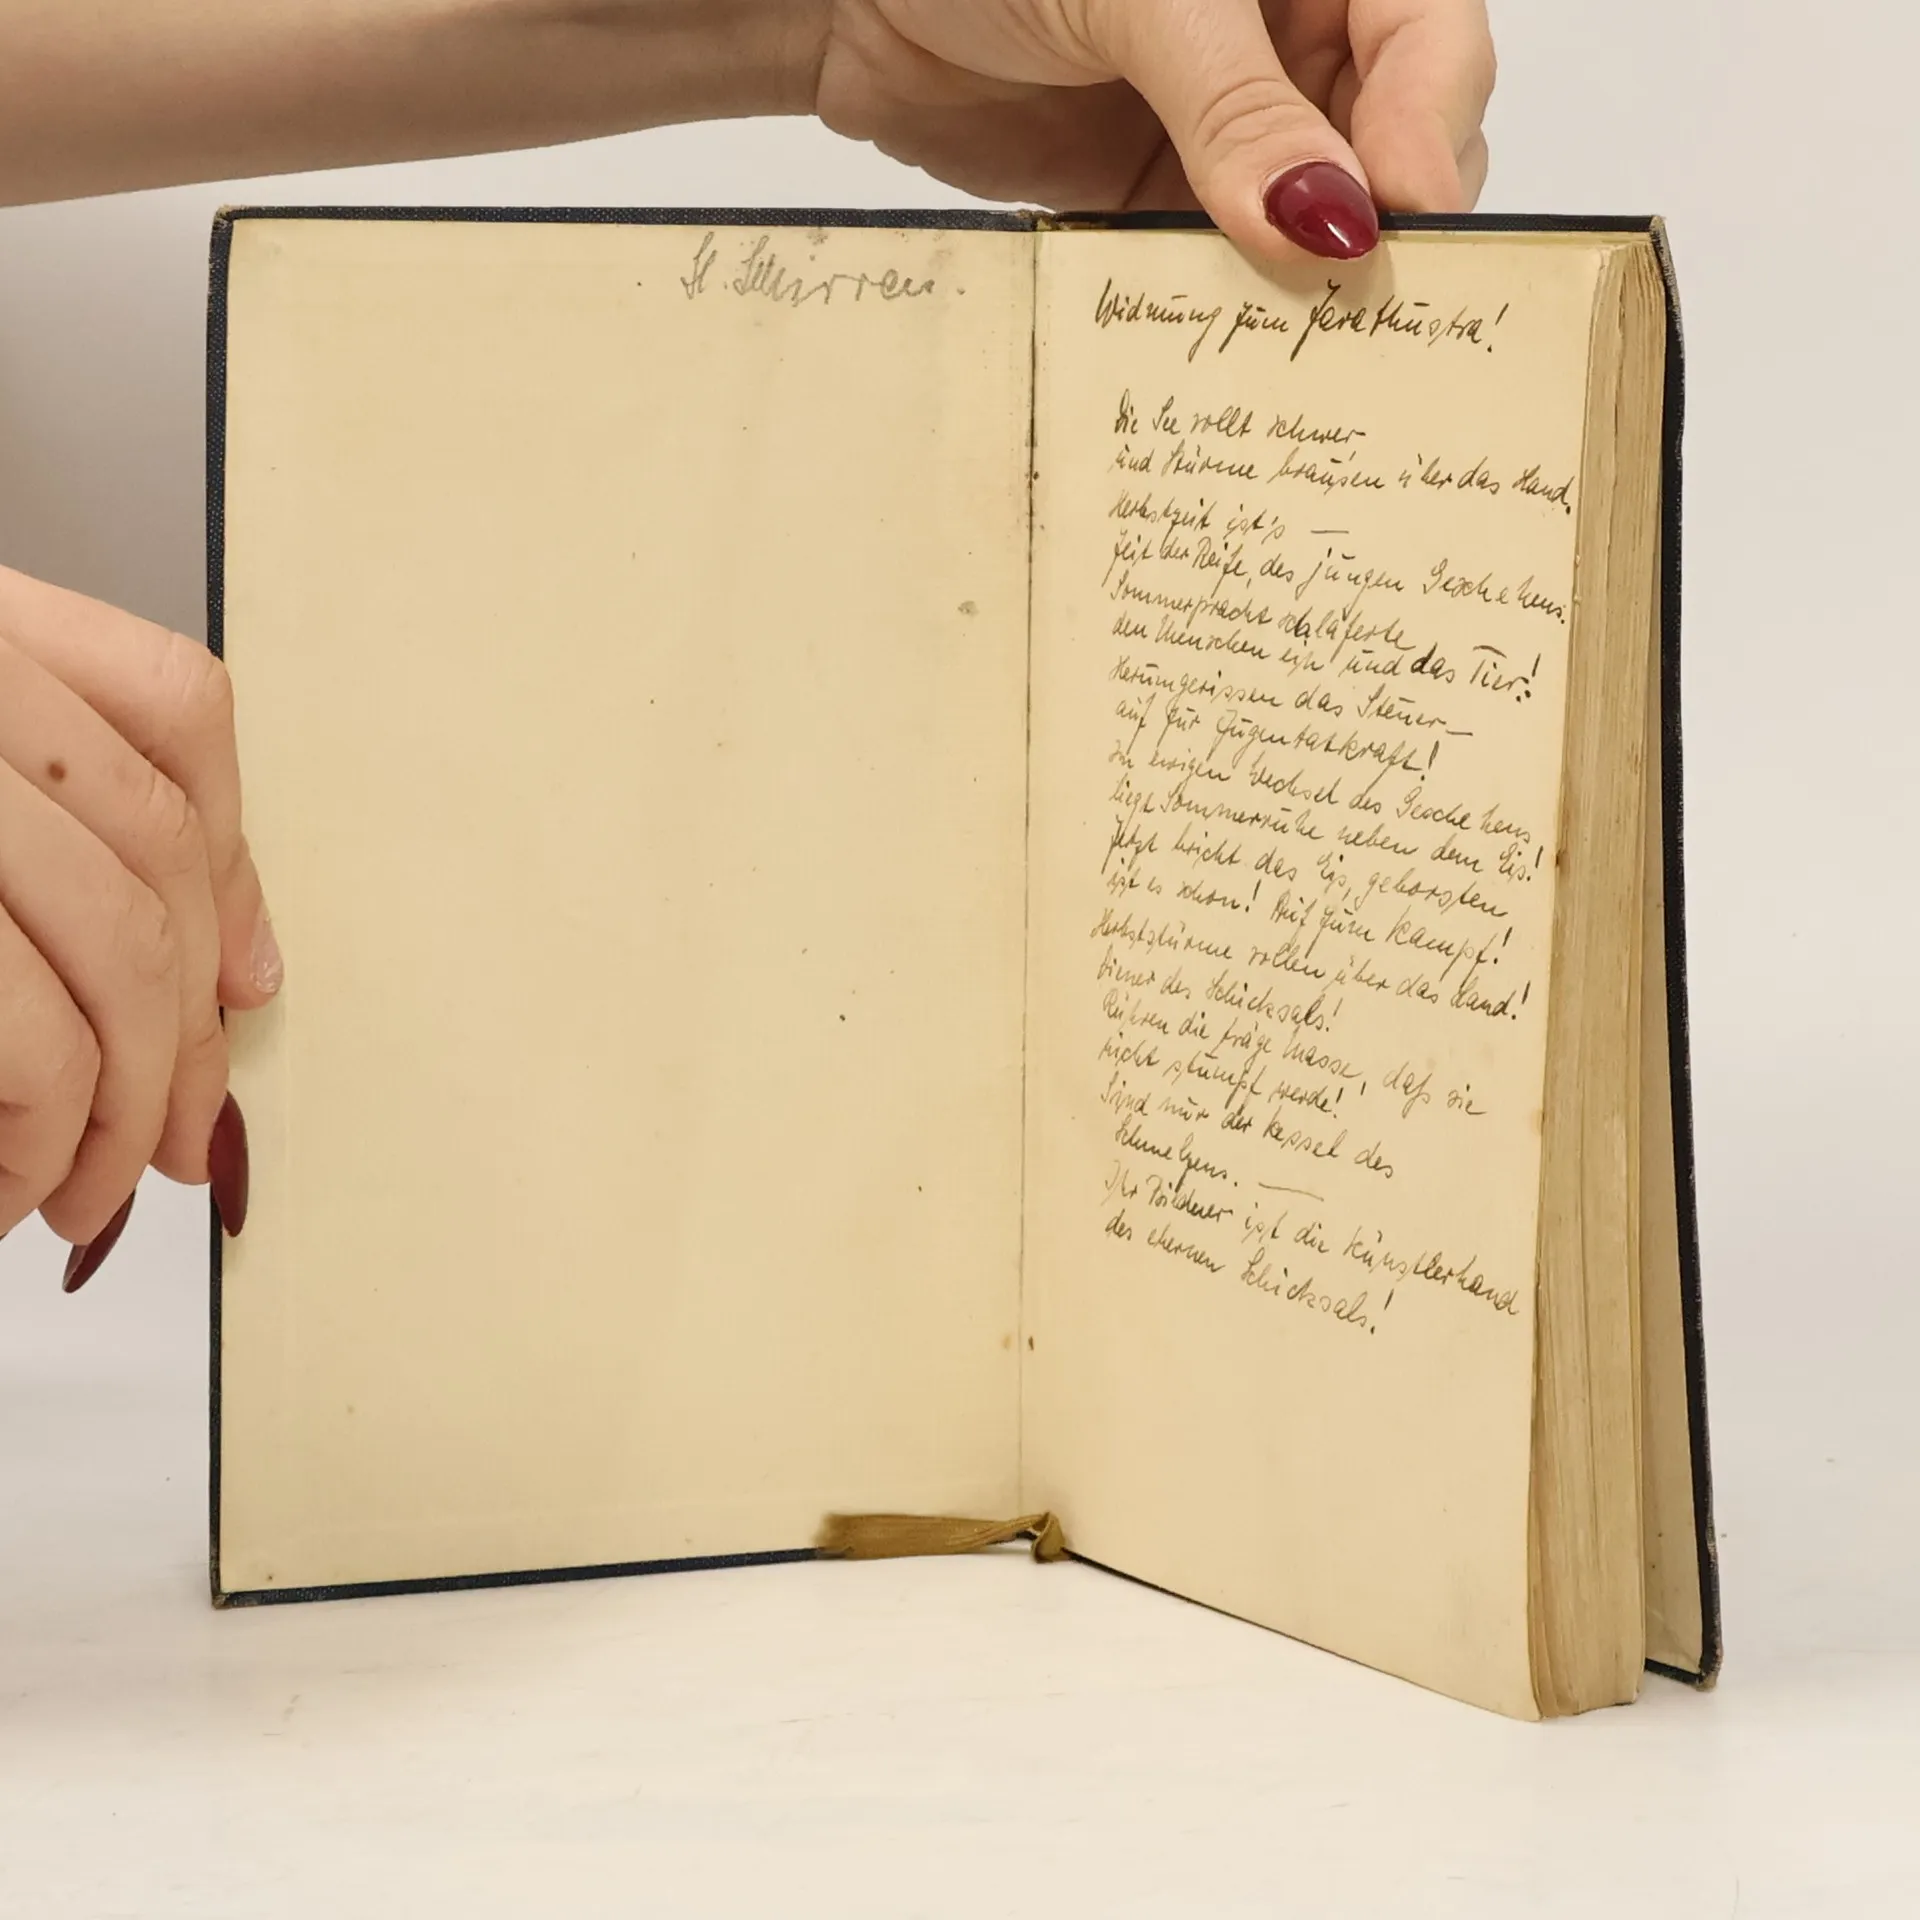 Widmung zum Zarathustra!
Die See rollt schwer
und Stürme brausen über das Land.
Herbstzeit ist's —
Zeit der Reife, des jungen Geschehens.
Sommerpracht schläferte
den Menschen ein und das Tier!
Herumgerissen das Steuer —
auf zur Jugentatkraft!
Im ewigen Wechsel des Geschehens
liegt Sommerruhe neben dem Eis!
Jetzt bricht das Eis, geborsten
ist es schon! Auf zum Kampf!
Herbststürme rollen über das Land!
Diener des Schicksals!
Rühren die träge Masse, daß sie
nicht stumpf werde!
Sind nur der Kessel des
Schmelzens. —
Ihr Bildner ist die Künstlerhand
des ehernen Schicksals!